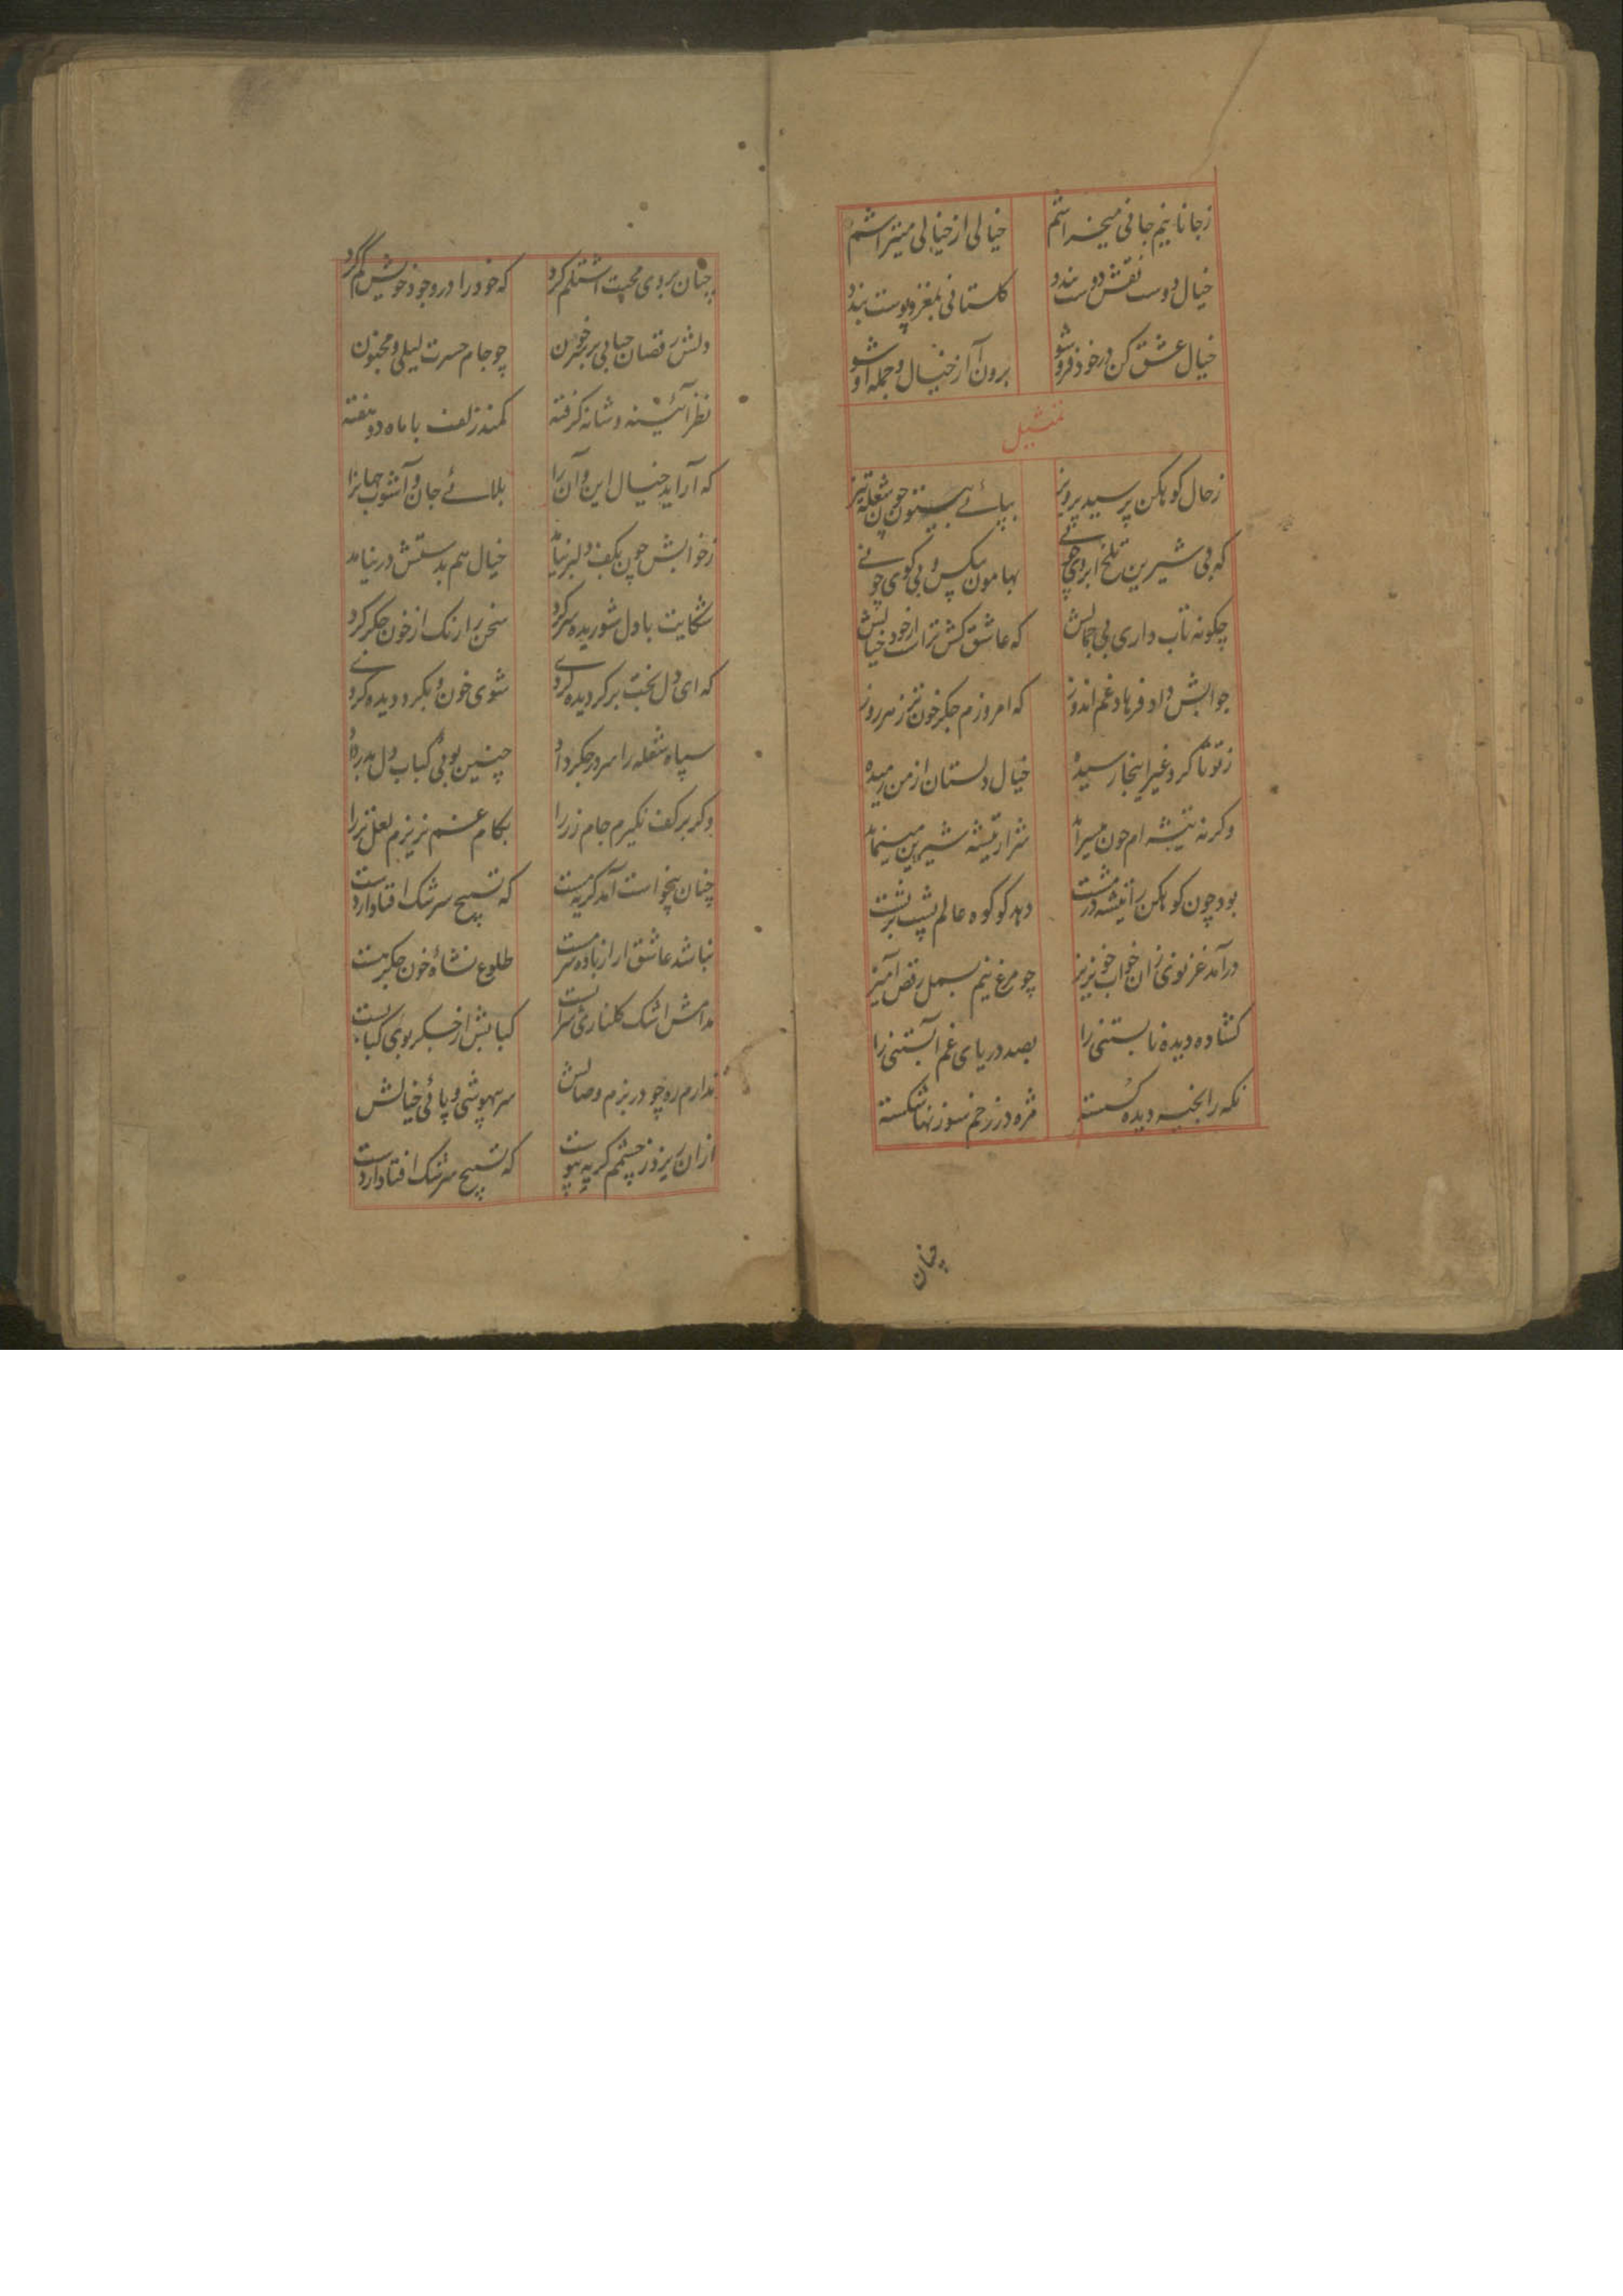 زجانانیم جانی میخراشم خیالی از خیالی میتراشم
خیال دوست نقش دوست بندد کلستانی بمغز و پوست بندد
خیال عشق کن در خود فرو شو برون آ از خیال و جمله او شو
تمثیل
زحال کوهکن پرسید پرویز بپائے بیستون چون شعله تیز
که بی شیرین تلخ ابروی چونے بهامون بیکس و بی کوی چونے
چکونه تاب داری بی جمالش که عاشق کش تراست از خود خیالش
جوابش داد فرهاد غم اندوز که امروزم جکرخون تر ز هر روز
ز تو تا کرد غیر اینجا رسیده خیال دلستان از من رمیده
وکرنه تیشه ام چون میسراید شرار تیشه شیرین مینماید
بود چون کوهکن را تیشه در مشت دهد کو کوه عالم پشت بر پشت
درآمد غزنوی زان خواب خونریز چو مرغ نیم بسمل رقص آمیز
کشاده دیده نابستنی را بصد دریای غم آبستنی را
نکه را بخیه دیده کسسته مژه در زخم سوزنها شکسته
چنان
چنان بر وی محبت اشتلم کرد که خود را در وجود خویش کم کرد
دلش رقصان حبابی بر سر خون چو جام حسرت لیلی و مجنون
نظر آئینه و شانه کرفته کمند زلف با ماه دو هفته
که آراید خیال این و آن را بلائے جان و آشوب جهانرا
زخوابش چون بکف دلبر نیامد خیال هم بدستش در نیامد
شکایت با دل شوریده سر کرد سخن را رنک از خون جکر کرد
که ای دل بخت بر کردیده کردے شوی خون و بکرد دیده کردے
سپاه شعله را سر در جکر داد چنین بوئی کباب دل بدر داد
وکر بر کف نکیرم جام زر را بکام غم نریزم لعل تر را
چنان بیخواست آمد کریه مست که تسبیح سرشک افتاد از دست
نباشد عاشق ار از باده سرمست طلوع نشاهٔ خون جکر هست
مدامش اشک کلناری شرابست کبابش از جکر بوی کبابست
ندارم ره چو در بزم وصالش سر بیهوشی و پائی خیالش
ازان ریزد ز چشمم کریه پیوست که تسبیح سرشک افتاد از دست